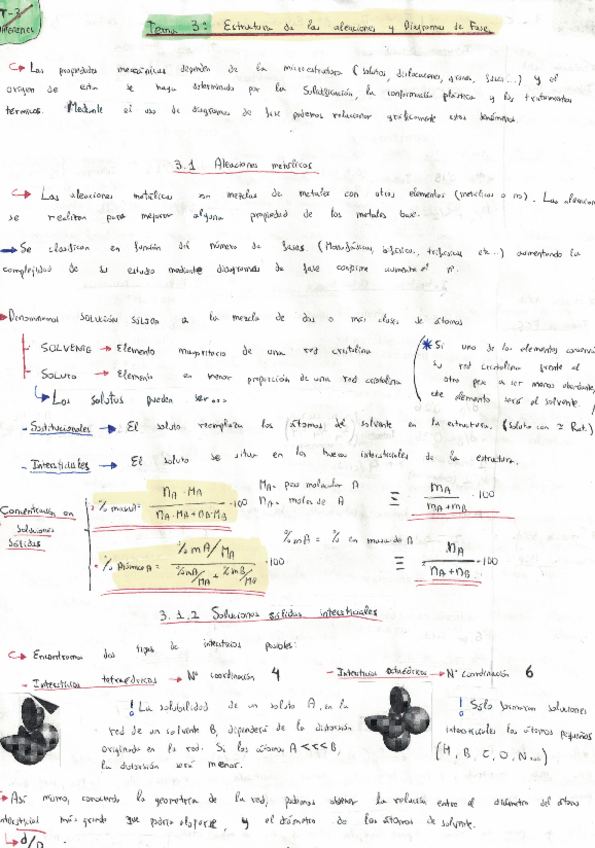 T-3
Tema 3: Estructura de las aleaciones y Diagramas de Fase
Las propiedades mecánicas dependen de la microestructura (solutos, dislocaciones, granos, fases...) y el
origen de esta se haya determinado por la Solidificación, la conformación plástica y los tratamientos
térmicos. Mediante el uso de diagramas de fase podemos relacionar gráficamente estos fenómenos.
3.1 Aleaciones metálicas
Las aleaciones metálicas son mezclas de metales con otros elementos (metálicos o no). Las aleacion
se realizan para mejorar alguna propiedad de los metales base.
Se clasifican en función del número de fases (Monofásicas, bifásicas, trifásicas etc...) aumentando la
complejidad de su estudio mediante diagramas de fase conforme aumenta el nº.
Denominamos SOLUCIÓN SÓLIDA a la mezcla de dos o más clases de átomos
SOLVENTE → Elemento mayoritario de una red cristalina
SOLUTO → Elemento en menor proporción de una red cristalina
Los solutos pueden ser...
* Si uno de los elementos conserva
su red cristalina frente al
otro pese a ser menos abundante,
ese elemento será el solvente.
- Sustitucionales → El soluto reemplaza los átomos del solvente en la estructura. (Soluto con ≈ Rat.)
- Intersticiales → El soluto se situa en los huecos intersticiales de la estructura.
Concentración en
soluciones
sólidas
% masaA = nA·MA / nA·MA + nB·MB ·100
MA = peso molecular A
nA = moles de A
≡ mA / mA + mB ·100
% AtómicoA = %mA/MA / %mA/MA + %mB/MB ·100
%mA = % en masa de A
≡ nA / nA + nB ·100
3.1.2 Soluciones sólidas intersticiales
Encontramos dos tipos de intersticios posibles:
- Intersticios tetraédricos → Nº coordinación 4
- Intersticios Octaédricos → Nº Coordinación 6
! La solubilidad de un soluto A, en la
red de un solvente B, dependerá de la distorsión
originada en la red. Si los átomos A <<< B,
la distorsión será menor.
! Sólo formaran soluciones
intersticiales los átomos pequeños
(H, B, C, O, N...)
Así mismo, conociendo la geometría de la red, podemos obtener la relación entre el diámetro del átomo
intersticial más grande que podría alojarse, y el diámetro de los átomos de solvente.
d/D